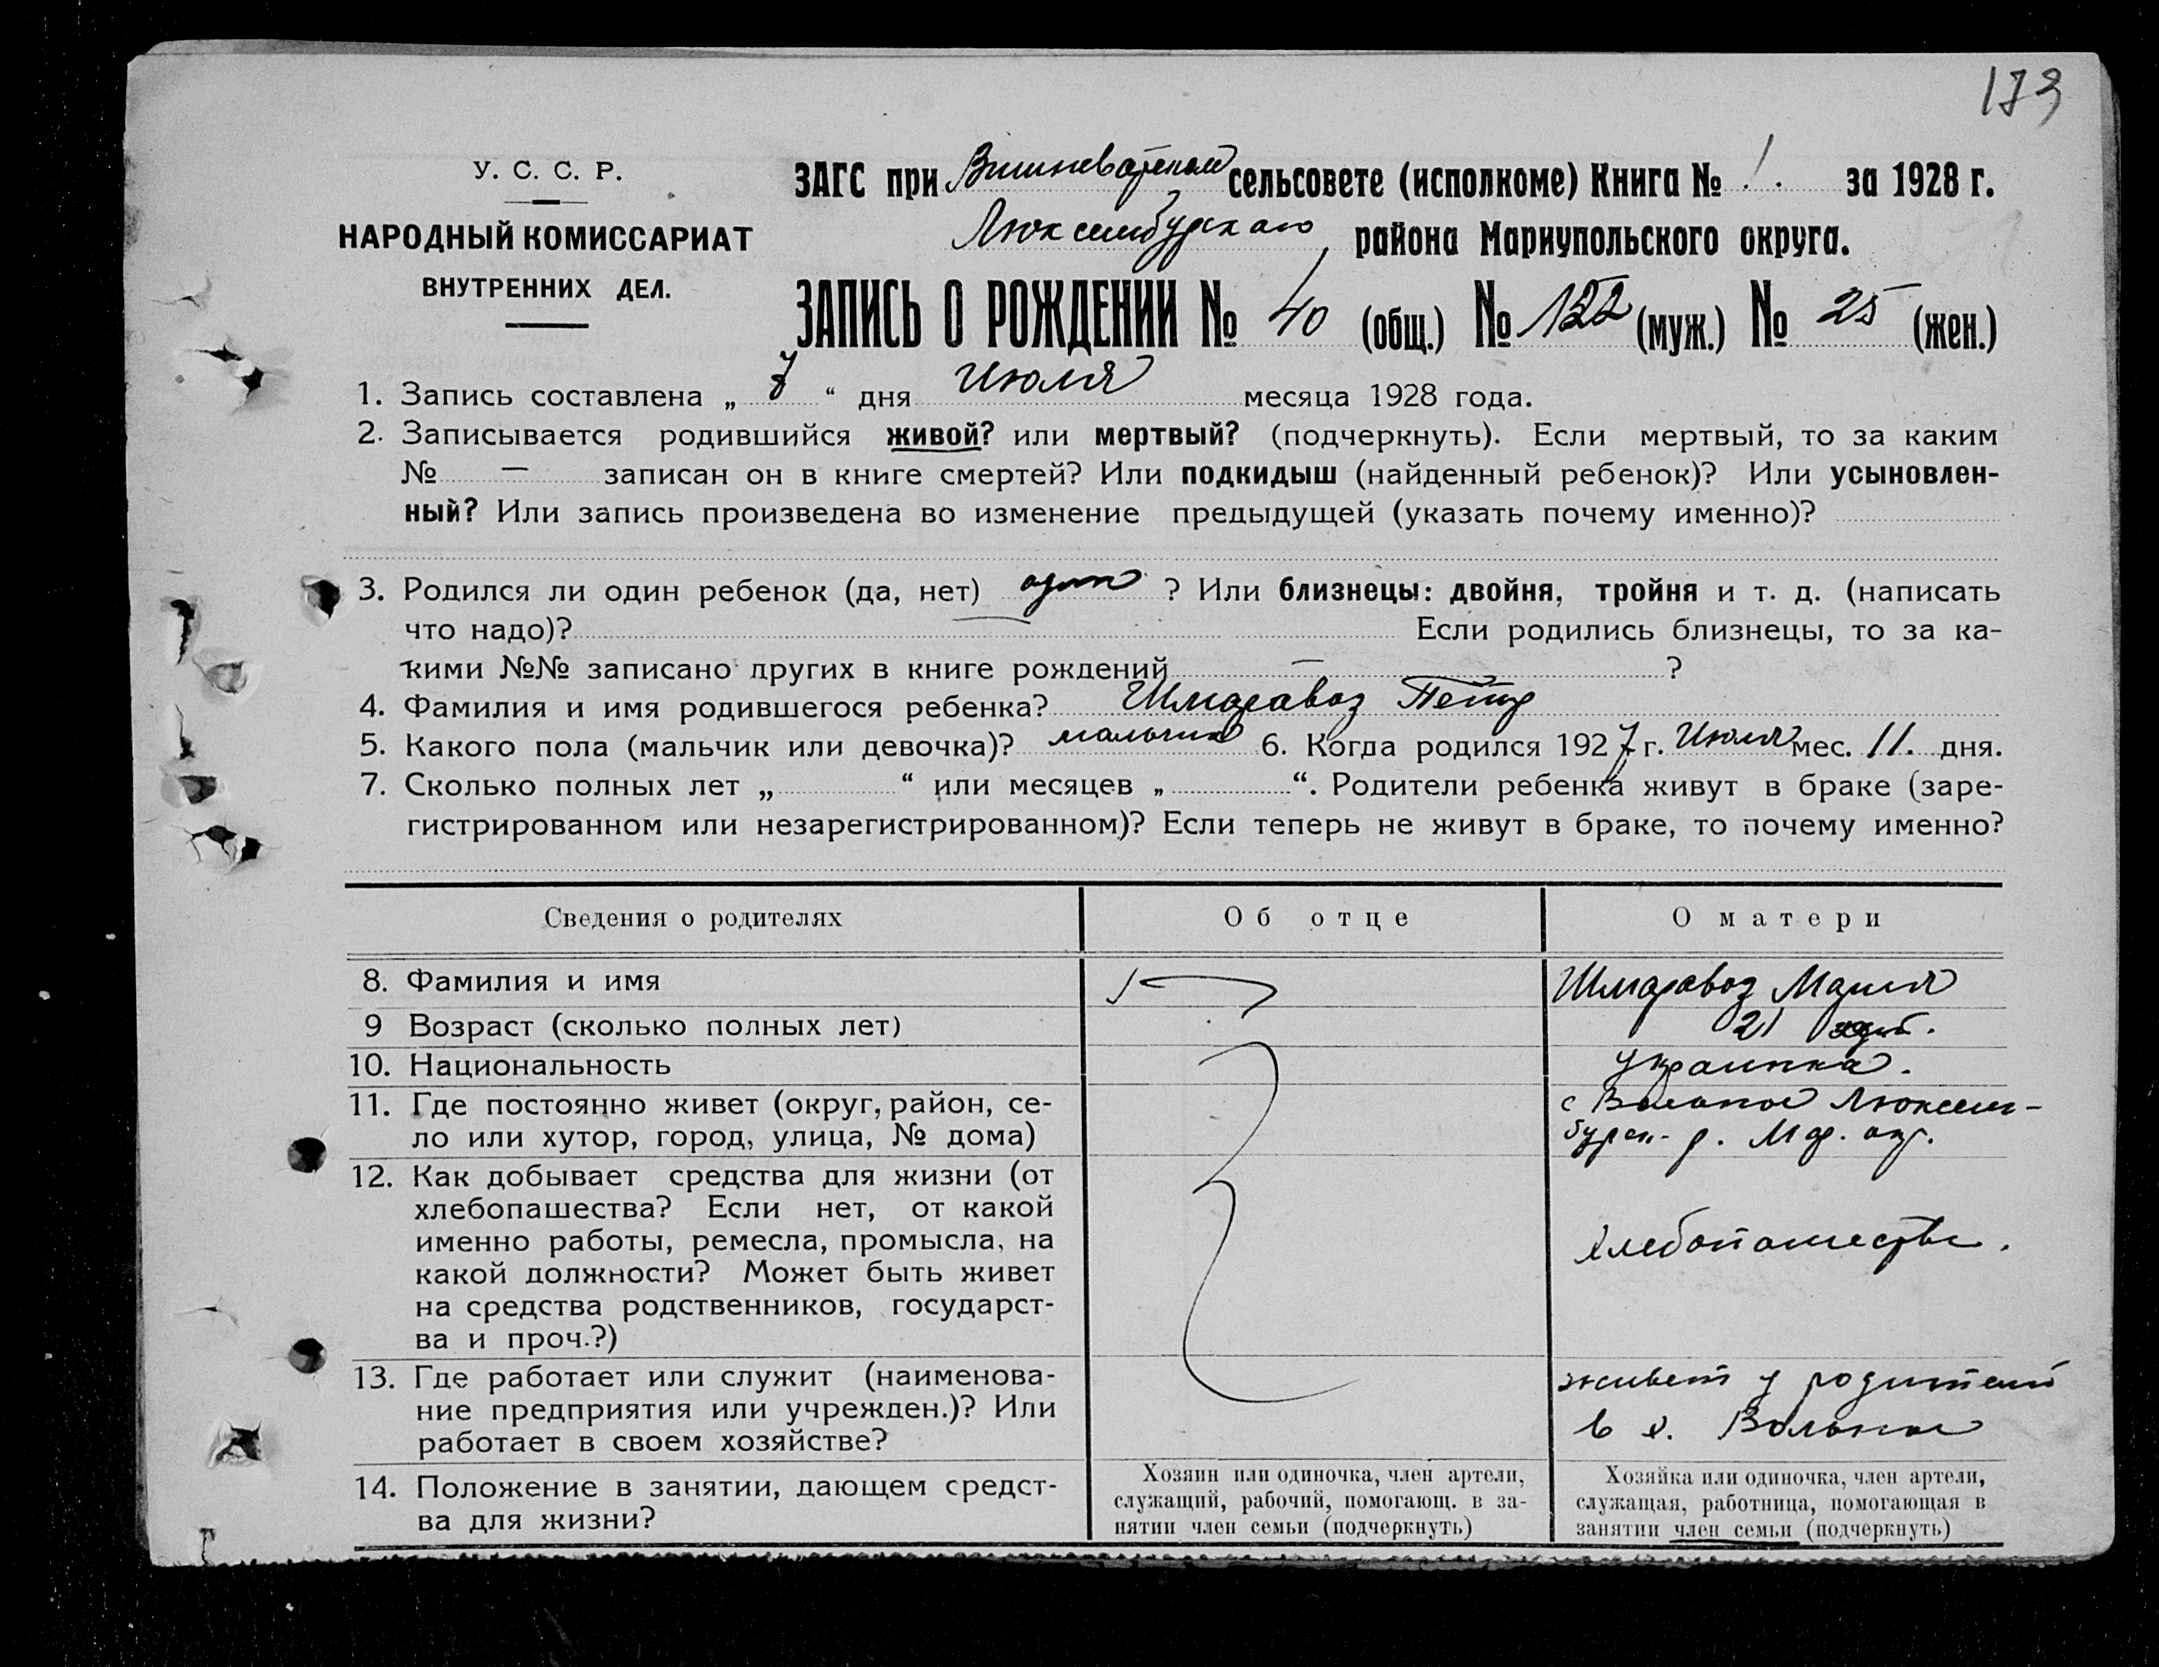 173
У. С. С. Р.
НАРОДНЫЙ КОМИССАРИАТ
ВНУТРЕННИХ ДЕЛ.
ЗАГС при сельсовете (исполкоме) Книга № 1. за 1928 г.
Люксембургского района Мариупольского округа.
ЗАПИСЬ О РОЖДЕНИИ № 40 (общ.) № (муж.) № 25 (жен.)
1. Запись составлена „ “ дня Июля месяца 1928 года.
2. Записывается родившийся живой? или мертвый? (подчеркнуть). Если мертвый, то за каким
№ — записан он в книге смертей? Или подкидыш (найденный ребенок)? Или усыновлен-
ный? Или запись произведена во изменение предыдущей (указать почему именно)?
3. Родился ли один ребенок (да, нет) один ? Или близнецы: двойня, тройня и т. д. (написать
что надо)? — Если родились близнецы, то за ка-
кими №№ записано других в книге рождений — ?
4. Фамилия и имя родившегося ребенка? Шмаравоз Петр
5. Какого пола (мальчик или девочка)? мальчик 6. Когда родился 1927 г. Июля мес. 11. дня.
7. Сколько полных лет „ “ или месяцев „ “. Родители ребенка живут в браке (заре-
гистрированном или незарегистрированном)? Если теперь не живут в браке, то почему именно?
Сведения о родителях Об отце О матери
8. Фамилия и имя Шмаравоз Мария
9 Возраст (сколько полных лет) 21
10. Национальность украинка.
11. Где постоянно живет (округ, район, се-
ло или хутор, город, улица, № дома)
с Вольное Люксем-
бургск- р. Мар. окр.
12. Как добывает средства для жизни (от
хлебопашества? Если нет, от какой
именно работы, ремесла, промысла, на
какой должности? Может быть живет
на средства родственников, государст-
ва и проч.?)
хлебопашество.
13. Где работает или служит (наименова-
ние предприятия или учрежден.)? Или
работает в своем хозяйстве?
живет у родителей
в с. Вольное
14. Положение в занятии, дающем средст-
ва для жизни?
Хозяин или одиночка, член артели,
служащий, рабочий, помогающ. в за-
нятии член семьи (подчеркнуть)
Хозяйка или одиночка, член артели,
служащая, работница, помогающая в
занятии член семьи (подчеркнуть)